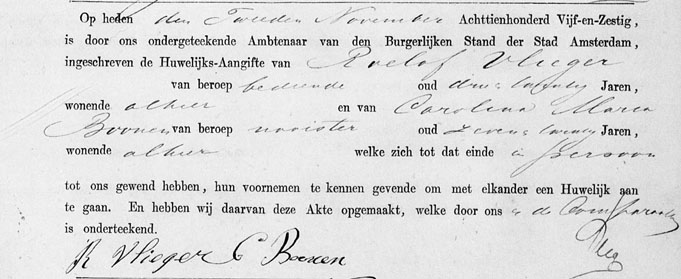 Op heden den Tweeden November Achttienhonderd Vijf-en-Zestig,
is door ons ondergeteekende Ambtenaar van den Burgerlijken Stand der Stad Amsterdam,
ingeschreven de Huwelijks-Aangifte van Roelof Vlieger
van beroep bediende oud drie twintig Jaren,
wonende alhier en van Carolina Maria
Boonen van beroep naaister oud zeven twintig Jaren,
wonende alhier welke zich tot dat einde in persoon
tot ons gewend hebben, hun voornemen te kennen gevende om met elkander een Huwelijk aan
te gaan. En hebben wij daarvan deze Akte opgemaakt, welke door ons de Comparanten
is onderteekend.
R Vlieger C Boonen